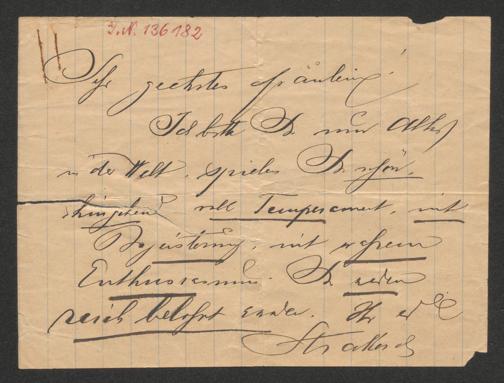 I.N. 136182
Sehr geehrtes Fräulein!
Ich bitte Sie um Alles
in der Welt, spielen Sie schön,
hinreißend voll Temperament, mit
Begeisterung, mit wahrem
Enthusiasmus. Sie werden
reich belohnt werden. Ihr
Strakosch